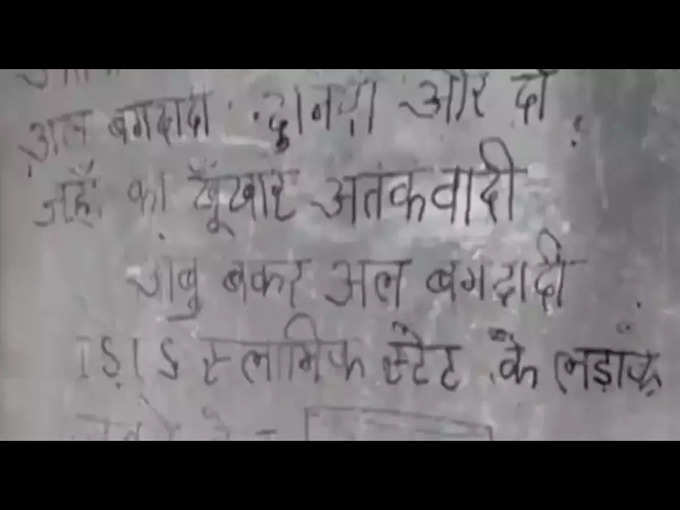 अल बगदादी दुनिया और दो
जहाँ का खूँखार अतंकवादी
अबु बकर अल बगदादी
ISIS इस्लामिक स्टेट के लड़ाके